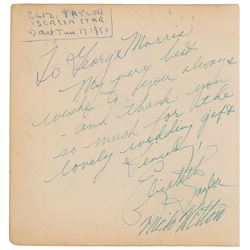 ELIZ. TAYLOR
SCREEN STAR
Met Jun. 17 1950
To George Morris
My very best
wishes to you always
- and thank you
so much for the
lovely wedding gift
Sincerely,
Elizabeth
Taylor
Hilton